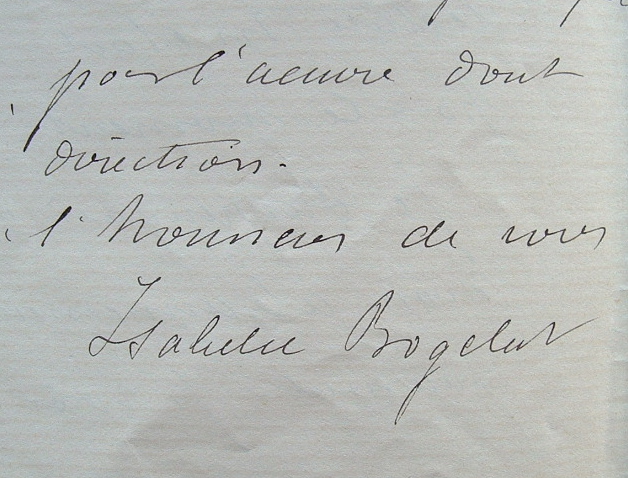 pour l'œuvre dont
direction.
l'honneur de vous
Isabelle Bogelot